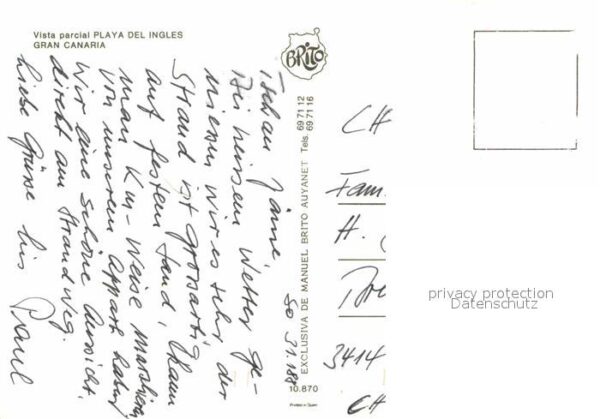 Vista parcial PLAYA DEL INGLES
GRAN CANARIA
BRITO
EXCLUSIVA DE MANUEL BRITO AUYANET Tels. 69 71 12
69 71 16
10.870
Printed in Spain
So 31.1.88
Tschau
Bei heissem Wetter ge-
niessen wir es sehr der
Strand ist grossartig
auf festem Sand, kann
man Km-Weise marschieren
von unserem Appart haben
Wir eine schöne Aussicht.
direkt am Strandweg.
Liebe Grüsse bis
CH
Fam
H.
3414
CH
privacy protection
Datenschutz